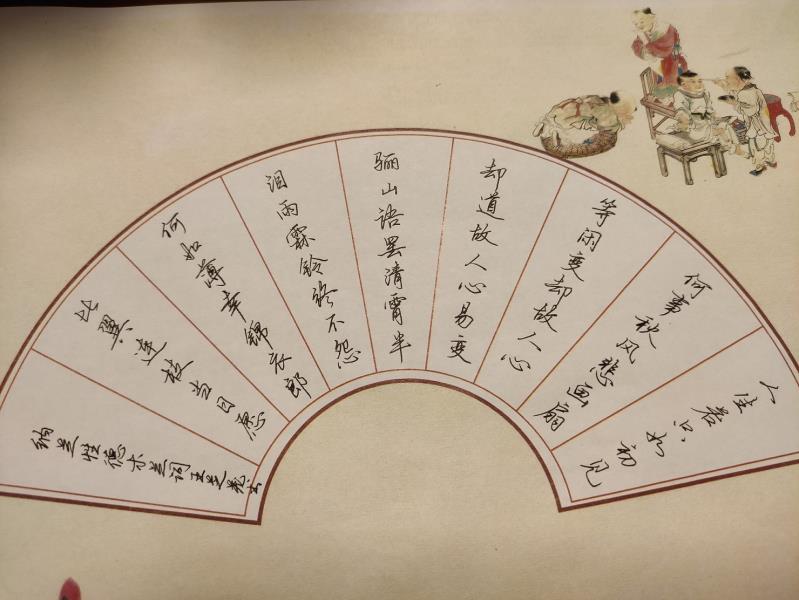 人生若只如初见
何事秋风悲画扇
等闲变却故人心
却道故人心易变
骊山语罢清霄半
泪雨霖铃终不怨
何如薄幸锦衣郎
比翼连枝当日愿
纳兰性德木兰词